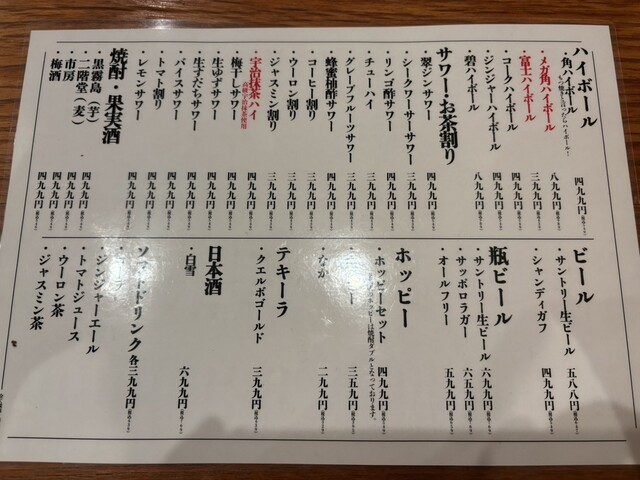 ハイボール
・角ハイボール 四九九円
焼きと言ったらハイボール！
・メガ角ハイボール 八九九円
・富士ハイボール 三九九円
・コークハイボール 四九九円
・ジンジャーハイボール 四九九円
・碧ハイボール 八九九円
サワー・お茶割り
・翠ジンサワー 四九九円
・シークワーサーサワー 三九九円
・リンゴ酢サワー 三九九円
・チューハイ 三九九円
・グレープフルーツサワー 三九九円
・蜂蜜柚酢サワー 四九九円
・コーヒー割り 三九九円
・ウーロン割り 三九九円
・ジャスミン割り 三九九円
・宇治抹茶ハイ 四九九円
高級宇治抹茶使用
・梅干しサワー 四九九円
・生ゆずサワー 四九九円
・生すだちサワー 四九九円
・バイスサワー 四九九円
・トマト割り 四九九円
・レモンサワー 四九九円
焼酎・果実酒
・黒霧島（芋） 四九九円
・二階堂（麦） 四九九円
・市房 四九九円
・梅酒 四九九円
ビール
・サントリー生ビール 五八八円
・シャンディガフ 四九九円
瓶ビール
・サントリー生ビール 六九九円
・サッポロラガー 六五九円
・オールフリー 五九九円
ホッピー
・ホッピーセット 四九九円
ホッピーは焼酎ダブルとなっております。
三五九円
・なか 二九九円
テキーラ
・クエルボゴールド 三九九円
日本酒
・白雪 六九九円
ソフトドリンク 各三九九円
・ジンジャーエール
・トマトジュース
・ウーロン茶
・ジャスミン茶